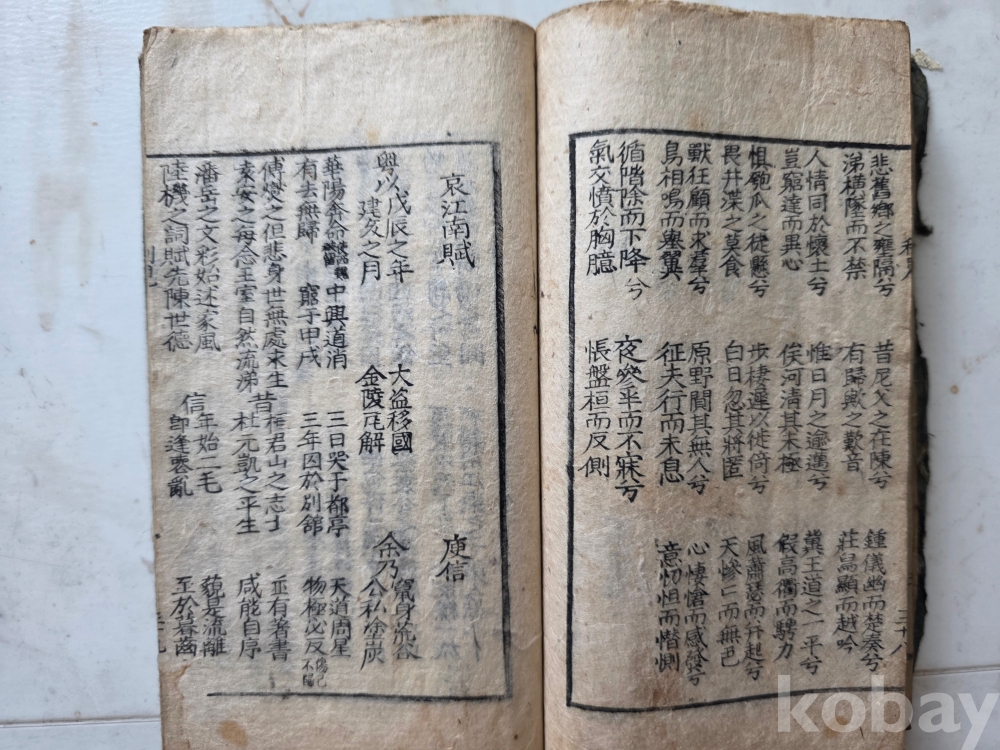 悲舊鄉之壅隔兮
涕橫墜而不禁
昔尼父之在陳兮
有歸歟之歎音
鍾儀幽而楚奏兮
莊舄顯而越吟
人情同於懷土兮
豈窮達而異心
惟日月之逾邁兮
俟河清其未極
冀王道之一平兮
假高衢而騁力
懼匏瓜之徒懸兮
畏井渫之莫食
步棲遲以徙倚兮
白日忽其將匿
風蕭瑟而並起兮
天慘〻而無色
獸狂顧而求羣兮
鳥相鳴而擧翼
原野闃其無人兮
征夫行而未息
心悽愴而感發兮
意忉怛而憯惻
循階除而下降兮
氣交憤於胸臆
夜參半而不寐兮
悵盤桓而反側
三十八
哀江南賦 庾信
粤以戊辰之年
建亥之月
大盜移國
金陵瓦解
余乃
竄身荒谷
公私塗炭
華陽奔命
有去無歸
中興道消
窮于甲戌
三日哭于都亭
三年囚於別舘
天道周星
物極必反
傅燮之但悲身世無處求生
袁安之每念王室自然流涕
昔
桓君山之志士
杜元凱之平生
並有著書
咸能自序
潘岳之文彩始述家風
陸機之詞賦先陳世德
信
年始二毛
卽逢喪亂
藐是流離
至於暮齒
kobay